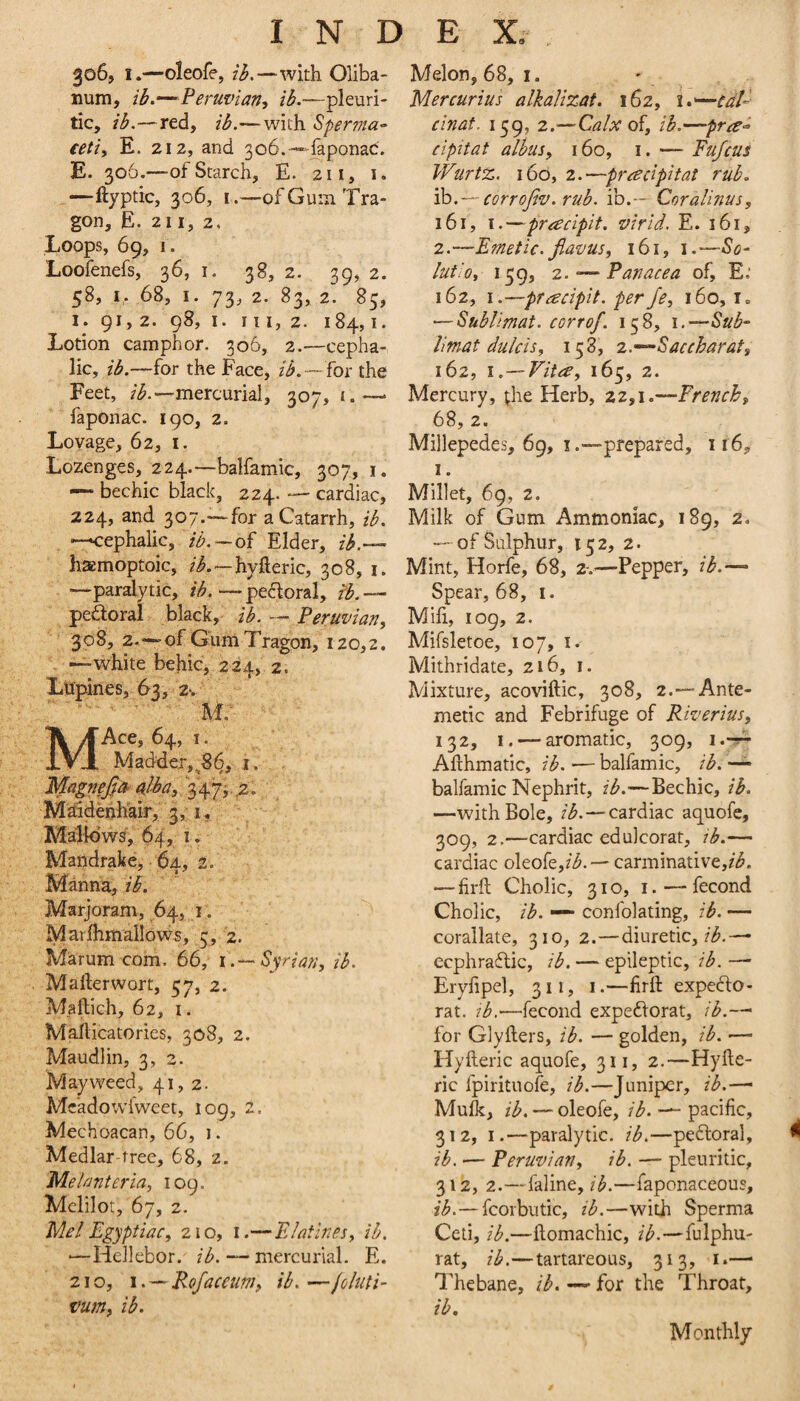 INDEX.
306, 1.—oleose, ib.—with Oliba-
num, ib.—Peruvian, ib.—pleuri-
tic, ib.—red, ib.—with Sperma-
ceti, E. 212, and 306.—saponac.
E. 306.—of Starch, E. 211, 1.
—styptic, 306, 1.—of Gum Tra-
gon, E. 211, 2.
Loops, 69, 1.
Looseness, 36, 1. 38, 2. 39, 2.
58, 1. 68, 1. 73, 2. 83, 2. 85,
1. 91, 2. 98, 1. 111, 2. 184, 1.
Lotion camphor. 306, 2.—cepha-
lic, ib.—for the Face, ib.—for the
Feet, ib.—mercurial, 307, 1.—
saponac. 190, 2.
Lovage, 62, 1.
Lozenges, 224.—balsamic, 307, 1.
— bechic black, 224. — cardiac,
224, and 307.—for a Catarrh, ib.
—cephalic, ib.—of Elder, ib.—
hæmoptoic, ib.—hysteric, 308, 1.
—paralytic, ib.—pectoral, ib.—
pectoral black, ib. — Peruvian,
308, 2.—of Gum Tragon, 120, 2.
—white behic, 224, 2.
Lupines, 63, 2.
M.
MAce, 64, 1.
Madder, 86, 1.
Magnesia alba, 347, 2.
Maidenhair, 3, 1.
Mallows, 64, 1.
Mandrake, 64, 2.
Manna, ib.
Marjoram, 64, 1.
Marshmallows, 5, 2.
Marum com. 66, 1.—Syrian, ib.
Masterwort, 57, 2.
Mastich, 62, 1.
Masticatories, 308, 2.
Maudlin, 3, 2.
Mayweed, 41, 2.
Meadowsweet, 109, 2.
Mechoacan, 66, 1.
Medlar-tree, 68, 2.
Melanteria, 109.
Melilot, 67, 2.
Mel Egyptiac, 210, 1.—Elatines, ib.
—Hellebor. ib.—mercurial. E.
210, 1.—Rosaceum, ib.—soluti-
vum, ib.
Melon, 68, 1.
Mercurius alkalizat. 162, 1.—cal-
cinat. 159, 2.—Calx of, ib.—præ-
cipitat albus, 160, 1. — Fuscus
Wurtz. 160, 2.—præcipitat rub.
ib.—corrosiv. rub. ib.—Coralinus,
161, 1.—præcipit. virid. E. 161,
2.—Emetic. flavus, 161, 1.—So-
lutio, 159, 2. — Panacea of, E.
162, 1.—præcipit. per se, 160, 1.
—Sublimat. corros. 158, 1.—Sub-
limat dulcis, 158, 2.—Saccharat,
162, 1.—Vitæ, 165, 2.
Mercury, the Herb, 22, 1.—French,
68, 2.
Millepedes, 69, 1.—prepared, 116,
1.
Millet, 69, 2.
Milk of Gum Ammoniac, 189, 2.
—of Sulphur, 152, 2.
Mint, Horse, 68, 2.—Pepper, ib.—
Spear, 68, 1.
Misi, 109, 2.
Missletoe, 107, 1.
Mithridate, 216, 1.
Mixture, acovistic, 308, 2.—Ante-
metic and Febrifuge of Riverius,
132, 1.—aromatic, 309, 1.—
Asthmatic, ib.—balsamic, ib.—
balsamic Nephrit, ib.—Bechic, ib.
—with Bole, ib.—cardiac aquose,
309, 2.—cardiac edulcorat, ib.—
cardiac oleose, ib.—carminative, ib.
—first Cholic, 310, 1.—second
Cholic, ib. — consolating, ib.—
corallate, 310, 2.—diuretic, ib.—
ecphractic, ib.—epileptic, ib.—
Erysipel, 311, 1.—first expecto-
rat. ib.—second expectorat, ib.—
for Glysters, ib.—golden, ib.—
Hysteric aquose, 311, 2.—Hyste-
ric spirituose, ib.—Juniper, ib.—
Musk, ib.—oleose, ib.—pacific,
312, 1.—paralytic. ib.—pectoral,
ib.—Peruvian, ib.—pleuritic,
312, 2.—saline, ib.—saponaceous,
ib.—scorbutic, ib.—with Sperma
Ceti, ib.—stomachic, ib.—sulphu-
rat, ib.—tartareous, 313, 1.—
Thebane, ib.—for the Throat,
ib.
Monthly